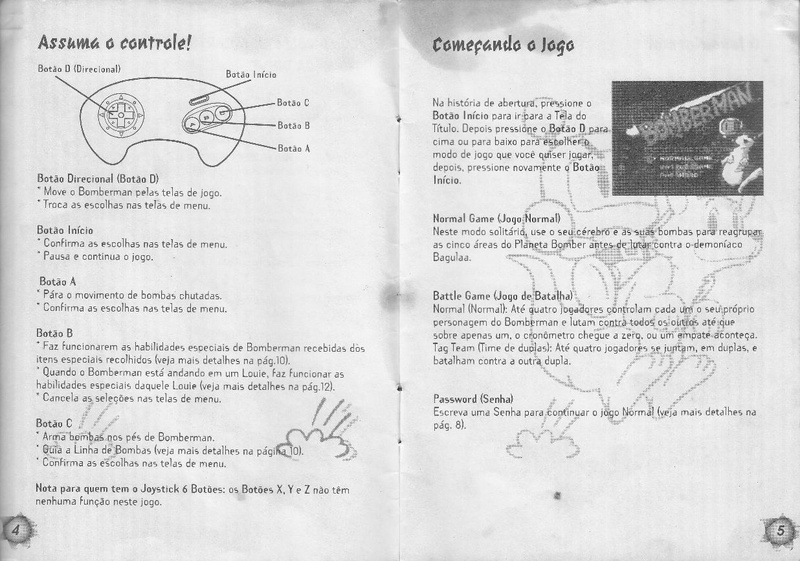 Assuma o controle!
Botão D (Direcional)
Botão Início
Botão C
Botão B
Botão A
Botão Direcional (Botão D)
* Move o Bomberman pelas telas de jogo.
* Troca as escolhas nas telas de menu.
Botão Início
* Confirma as escolhas nas telas de menu.
* Pausa e continua o jogo.
Botão A
* Pára o movimento de bombas chutadas.
* Confirma as escolhas nas telas de menu.
Botão B
* Faz funcionarem as habilidades especiais de Bomberman recebidas dos
itens especiais recolhidos (veja mais detalhes na pág.10).
* Quando o Bomberman está andando em um Louie, faz funcionar as
habilidades especiais daquele Louie (veja mais detalhes na pág.12).
* Cancela as seleções nas telas de menu.
Botão C
* Arma bombas nos pés de Bomberman.
* Guia a Linha de Bombas (veja mais detalhes na página 10).
* Confirma as escolhas nas telas de menu.
Nota para quem tem o Joystick 6 Botões: os Botões X, Y e Z não têm
nenhuma função neste jogo.
4
Começando o Jogo
Na história de abertura, pressione o
Botão Início para ir para a Tela do
Título. Depois pressione o Botão D para
cima ou para baixo para escolher o
modo de jogo que você quiser jogar,
depois, pressione novamente o Botão
Início.
BOMBERMAN
Normal Game (Jogo Normal)
Neste modo solitário, use o seu cérebro e as suas bombas para reagrupar
as cinco áreas do Planeta Bomber antes de lutar contra o demoníaco
Bagulaa.
Battle Game (Jogo de Batalha)
Normal (Normal): Até quatro jogadores controlam cada um o seu próprio
personagem do Bomberman e lutam contra todos os outros até que
sobre apenas um, o cronômetro chegue a zero, ou um empate aconteça.
Tag Team (Time de duplas): Até quatro jogadores se juntam, em duplas, e
batalham contra a outra dupla.
Password (Senha)
Escreva uma Senha para continuar o jogo Normal (veja mais detalhes na
pág. 8).
5